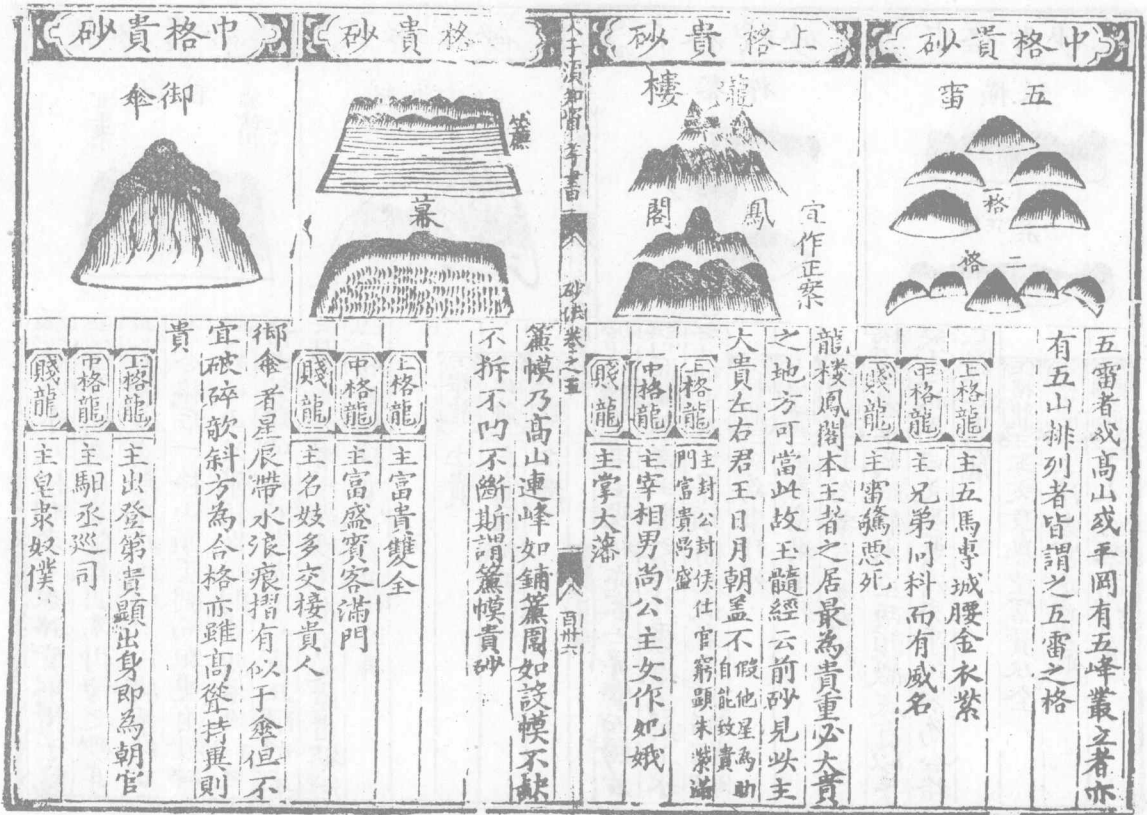 中格貴砂
五雷
一格
二格
五雷者或高山或平岡有五峰叢立者亦
有五山排列者皆謂之五雷之格
上格龍 主五馬專城腰金衣紫
中格龍 主兄弟同科而有威名
賤龍 主雷驚惡死
上格貴砂
龍樓
鳳閣
宜作正案
龍樓鳳閣本王者之居最為貴重必大貴
之地方可當此故玉髓經云前砂見此主
大貴左右君王日月朝蓋不假他星為助
自能致貴
上格龍 主封公封侯仕官窮顯朱紫滿
門富貴
中格龍 主宰相男尚公主女作妃娥
賤龍 主掌大藩
砂法卷之五
百卅六
格貴砂
簾
幕
簾幙乃高山連峰如鋪簾閣如設幙不缺
不拆不凹不斷斯謂簾幙貴砂
上格龍 主富貴雙全
中格龍 主富盛賓客滿門
賤龍 主名妓多交接貴人
中格貴砂
御傘
御傘者星辰帶水浪痕摺有似于傘但不
宜破碎欹斜方為合格亦雖高聳特異則
貴
上格龍 主出登第貴顯出身即為朝官
中格龍 主馹丞巡司
賤龍 主皂隶奴僕